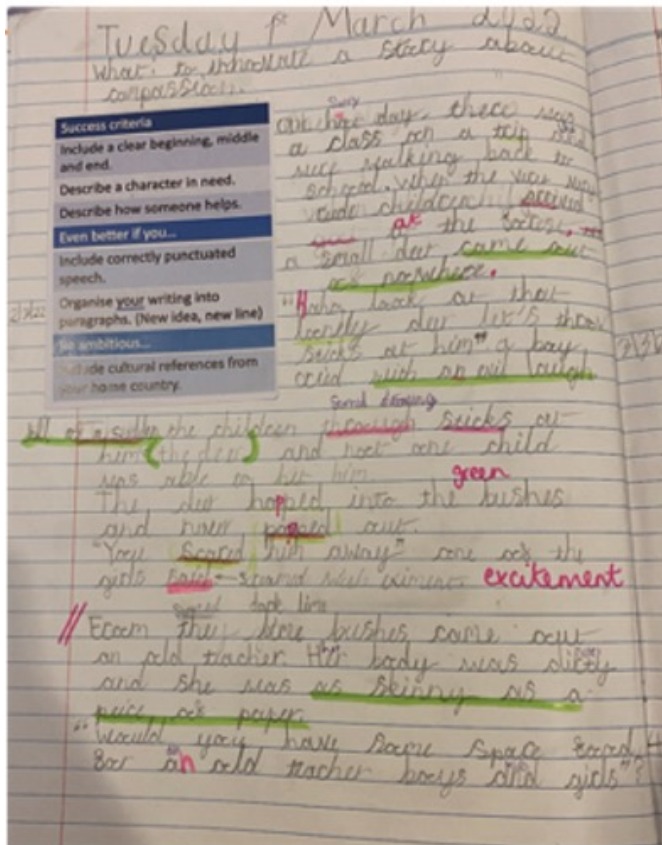 Tuesday 1st March 2022
What: to innovate a story about
compassion.
Success criteria
Include a clear beginning, middle
and end.
Describe a character in need.
Describe how someone helps.
Even better if you...
Include correctly punctuated
speech.
Organise your writing into
paragraphs. (New idea, new line)
Be ambitious...
Include cultural references from
your home country.
day, there was
a class on a trip
walking back to
school. When the
rude children arrived
at the forest,
a small deer came out
of nowhere.
"Haha look at that
lonely deer let's throw
sticks at him" a boy
cried with an evil laugh
2/3/22
All of a sudden the children through sticks at
him (the deer) and not one child
was able to hit him.
green
The deer hopped into the bushes
and never popped out.
"You scared him away" one of the
girls said excitement
dark lime
//
From the bushes came out
an old teacher. Her body was dirty
and she was as skinny as a
peice of paper.
"Would you have some space food
for an old teacher boys and girls"?